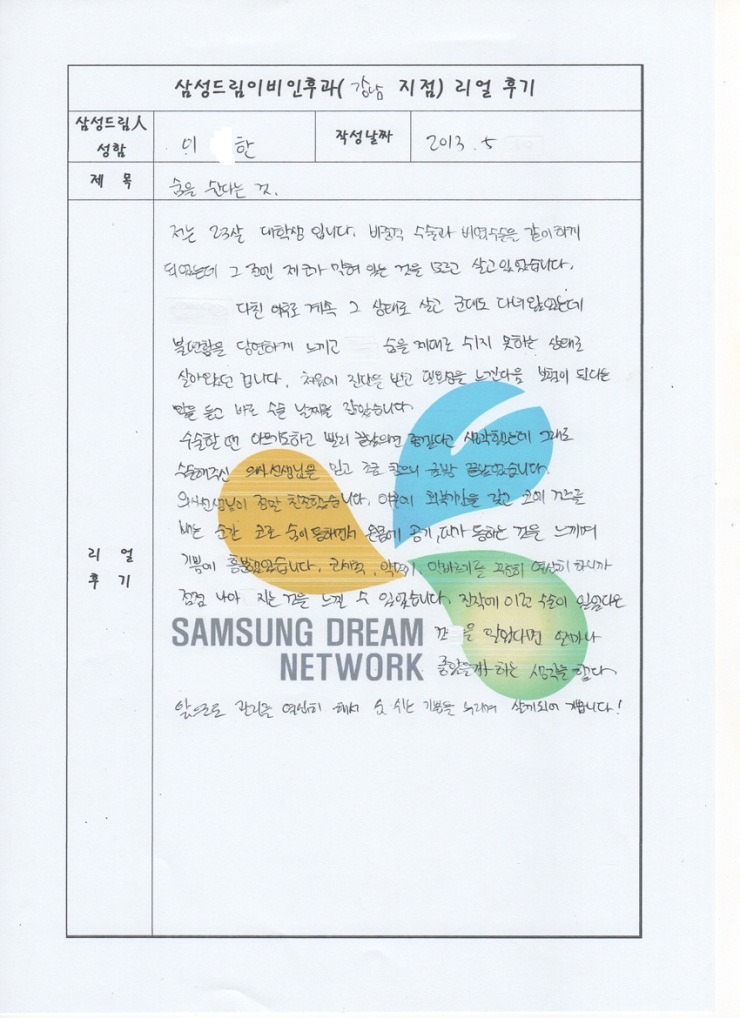 삼성드림이비인후과( 강남 지점) 리얼 후기
삼성드림人 성함
이 한
작성날짜
2013. 5
제 목
숨을 쉰다는 것.
리 얼 후 기
저는 23살 대학생 입니다. 비중격 수술과 비염수술을 같이하게
되었는데 그 전엔 제 코가 막혀 있는 것을 모르고 살고있었습니다.
다친 이후로 계속 그 상태로 살고 군대도 다녀왔었는데
불편함을 당연하게 느끼고 숨을 제대로 쉬지 못하는 상태로
살아왔던 겁니다. 처음에 진단을 받고 필요성을 느낀다음 보험이 된다는
말을 듣고 바로 수술 날짜를 잡았습니다.
수술할 땐 아프기도하고 빨리 끝났으면 좋겠다고 생각했는데 그래도
수술해주신 의사선생님을 믿고 조금 참으니 금방 끝났었습니다.
의사선생님이 정말 친절했습니다. 이후에 회복기간을 갖고 코에 거즈를
빼는 순간 코로 숨이 통해면서 온몸에 공기 하나가 통하는 것을 느끼며
기쁨에 흥분했었습니다. 코세척, 약먹기, 약바르기를 꾸준히 열심히 하니까
점점 나아 지는 것을 느낄 수 있었습니다. 진작에 이런 수술이 있었다는
것 을 알았다면 얼마나
좋았을까 하는 생각을 했다
앞으로 관리를 열심히 해서 숨 쉬는 기쁨을 누리며 살게되어 기쁩니다!
SAMSUNG DREAM
NETWORK